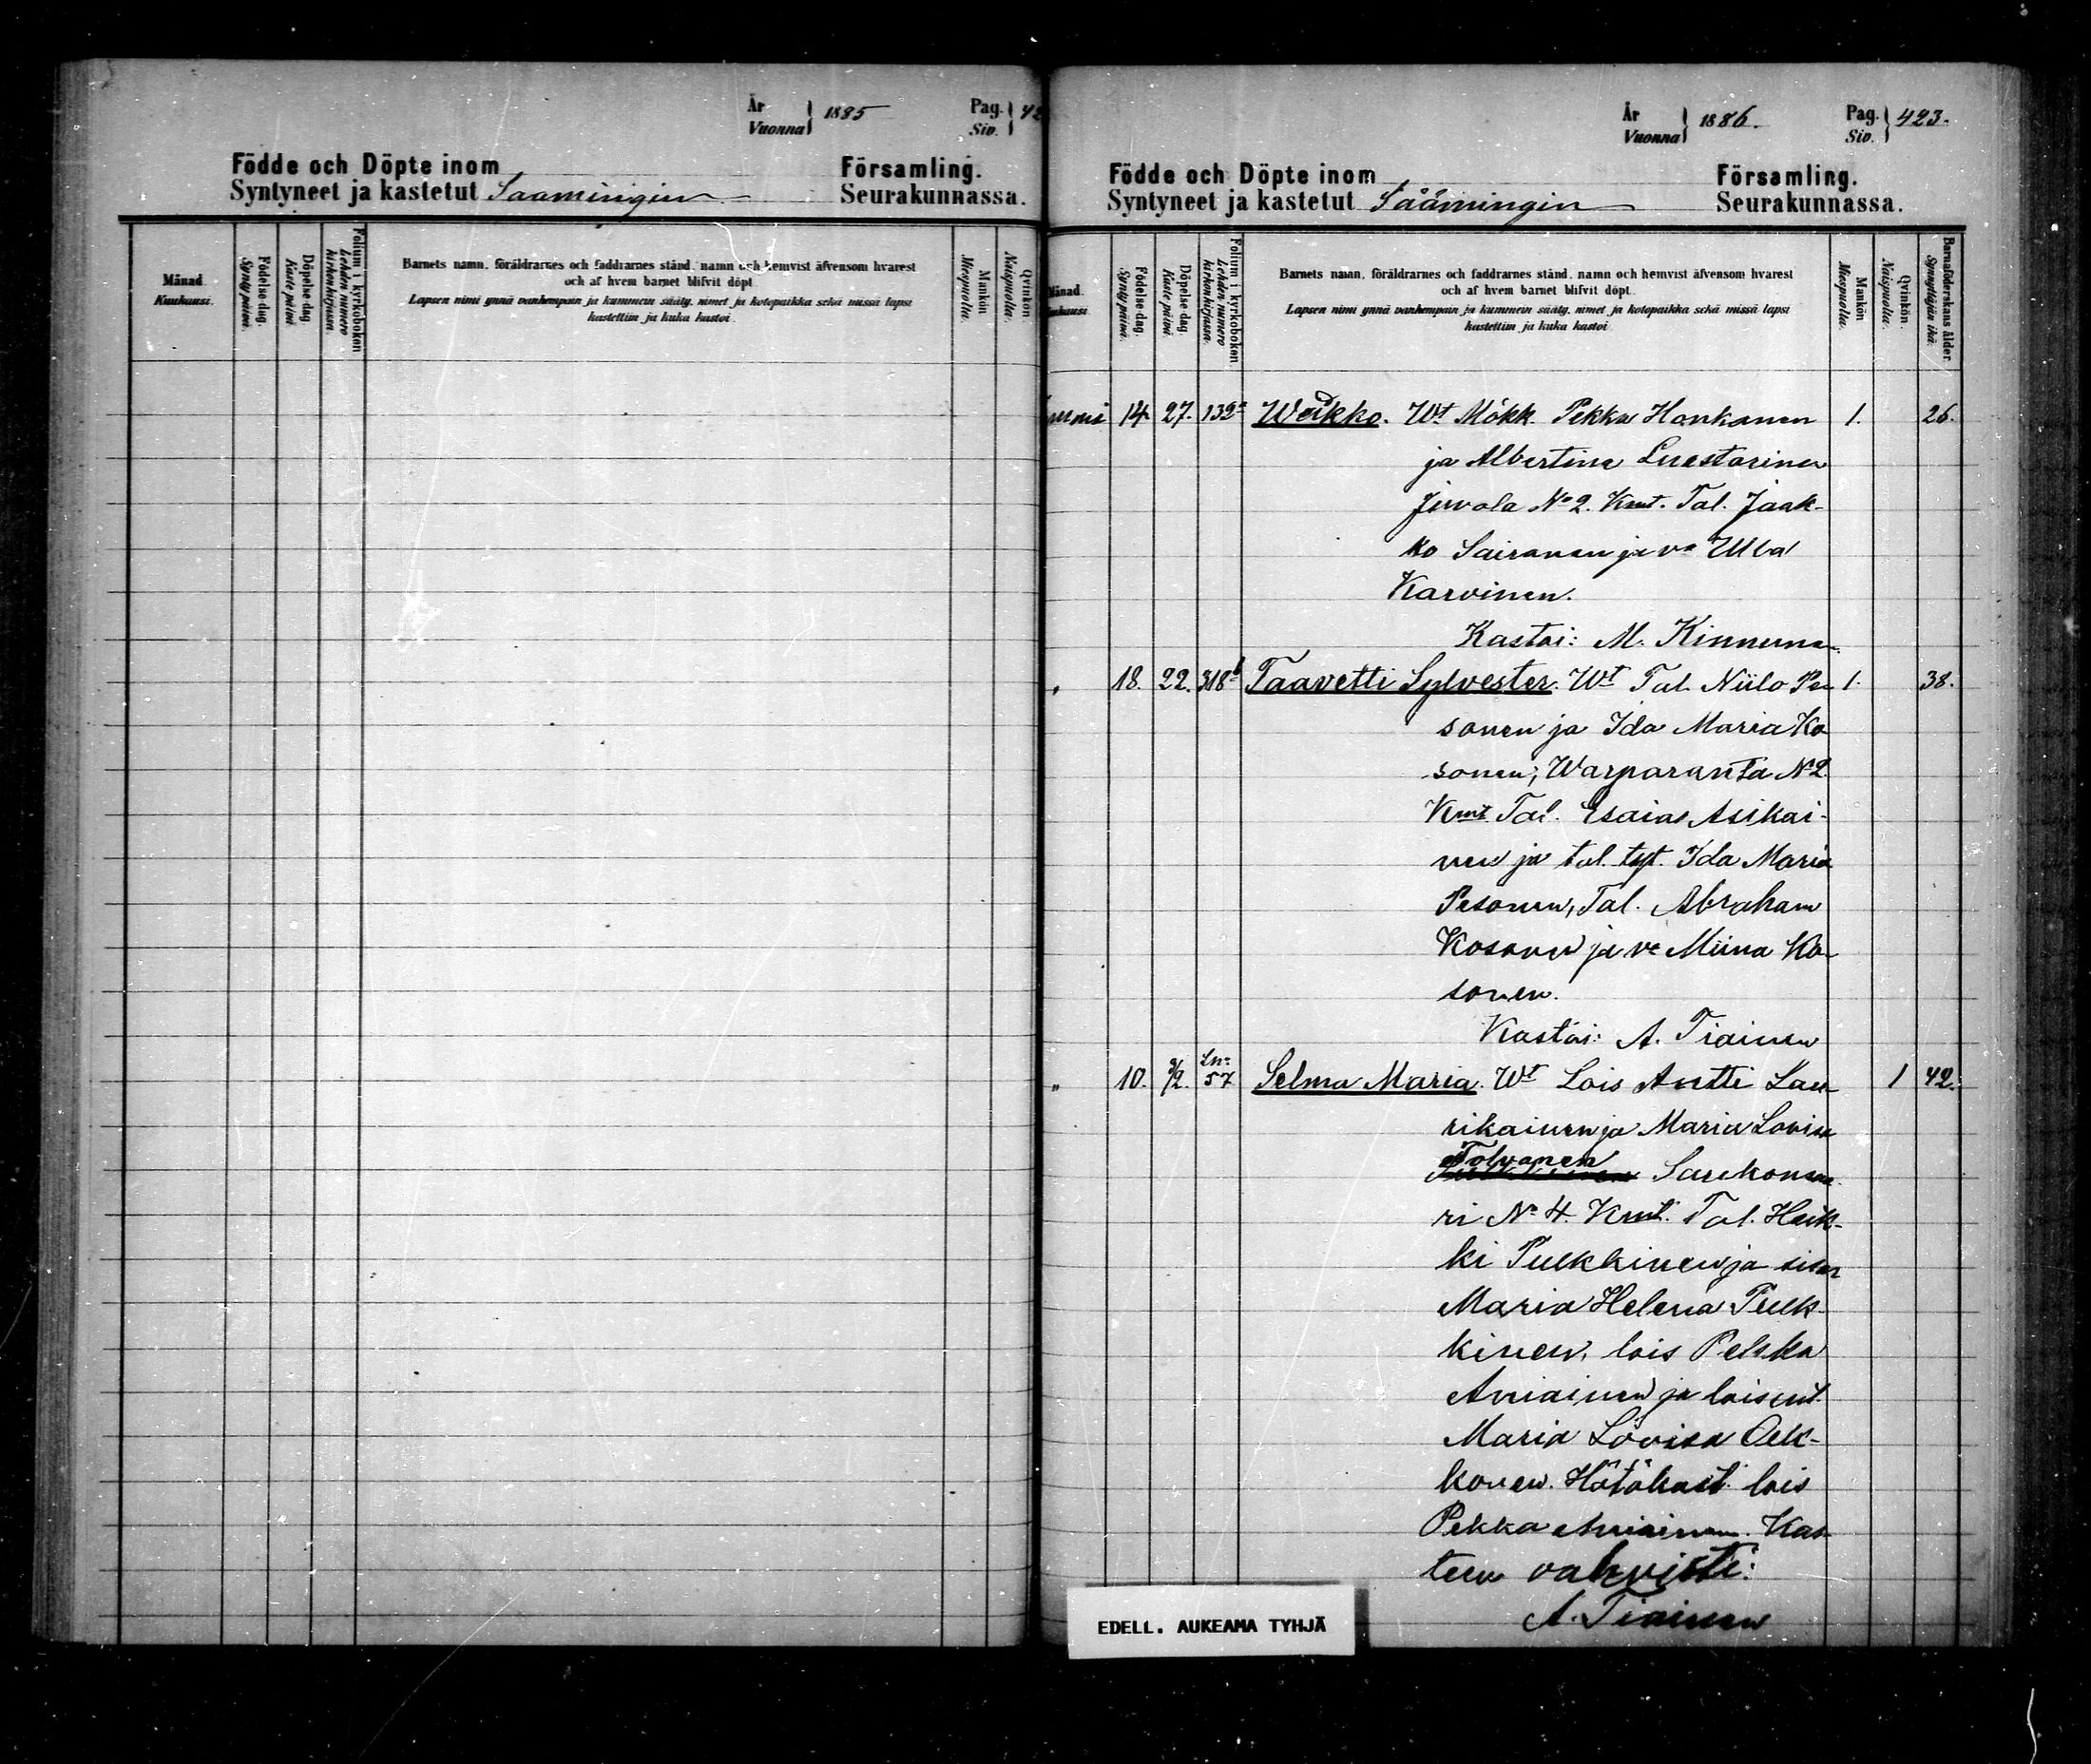 År
Vuonna } 1885
Pag.
Siv. } 42
Födde och Döpte inom Församling.
Syntyneet ja kastetut Saamingin Seurakunnassa.
Månad
Kuukausi.
Födelse-dag.
Synty päivä.
Döpelse-dag
Kaste päivä
Folium i kyrkoboken
Lehden numero kirkonkirjassa
Barnets namn, föräldrarnes och faddrarnes stånd, namn och hemvist äfvensom hvarest
och af hvem barnet blifvit döpt.
Lapsen nimi ynnä vanhempain ja kummein sääty, nimet ja kotopaikka sekä missä lapsi
kastettiin ja kuka kastoi.
Mankön
Miespuolia.
Qvinkön
Naispuolia.
År
Vuonna } 1886.
Pag.
Siv. } 423.
Födde och Döpte inom Församling.
Syntyneet ja kastetut Säämingin Seurakunnassa.
Månad
Kuukausi
Födelse-dag.
Synty päivä.
Döpelse-dag
Kaste päivä
Folium i kyrkoboken.
Lehden numero kirkonkirjassa.
Barnets namn, föräldrarnes och faddrarnes stånd, namn och hemvist äfvensom hvarest
och af hvem barnet blifvit döpt.
Lapsen nimi ynnä vanhempain ja kummein sääty, nimet ja kotopaikka sekä missä lapsi
kastettiin ja kuka kastoi
Mankön
Miespuolia.
Qvinkön.
Naispuolia.
Barnaföderskans ålder.
Synnyttäjän ikä.
14. 27. 132a Weikko. Wt Mökk. Pekka Honkanen 1. 26.
ja Albertina Luostarinen
Juvola No 2. Kmt. Tal. Jaak-
ko Sairanen ja va Ulla
Karvinen.
Kastoi: M. Kinnunen.
" 18. 22. 318b Taavetti Sylvester. Wt Tal. Niilo Pe- 1. 38.
sonen ja Ida Maria Ko-
sonen; Warparanta No 2.
Kmt. Tal. Esaias Asikai-
nen ja tal. tyt. Ida Maria
Pesonen, Tal. Abraham
Kosonen ja va Miina Ko-
sonen.
Kastoi: A. Tiainen
" 10. 9/2. Ln: 57 Selma Maria. Wt Lois Antti Lau- 1 42.
rikainen ja Maria Lovisa
Tolvanen
ri No 4. Kmt. Tal. Heik-
ki Pulkkinen ja sisar
Maria Helena Pulk-
kinen, lois Pekka
Auviainen ja loisent.
Maria Lovisa Oik-
konen. Hätäkast. lois
Pekka Auviainen. Kas-
teen vahvisti:
A. Tiainen
EDELL. AUKEAMA TYHJÄ